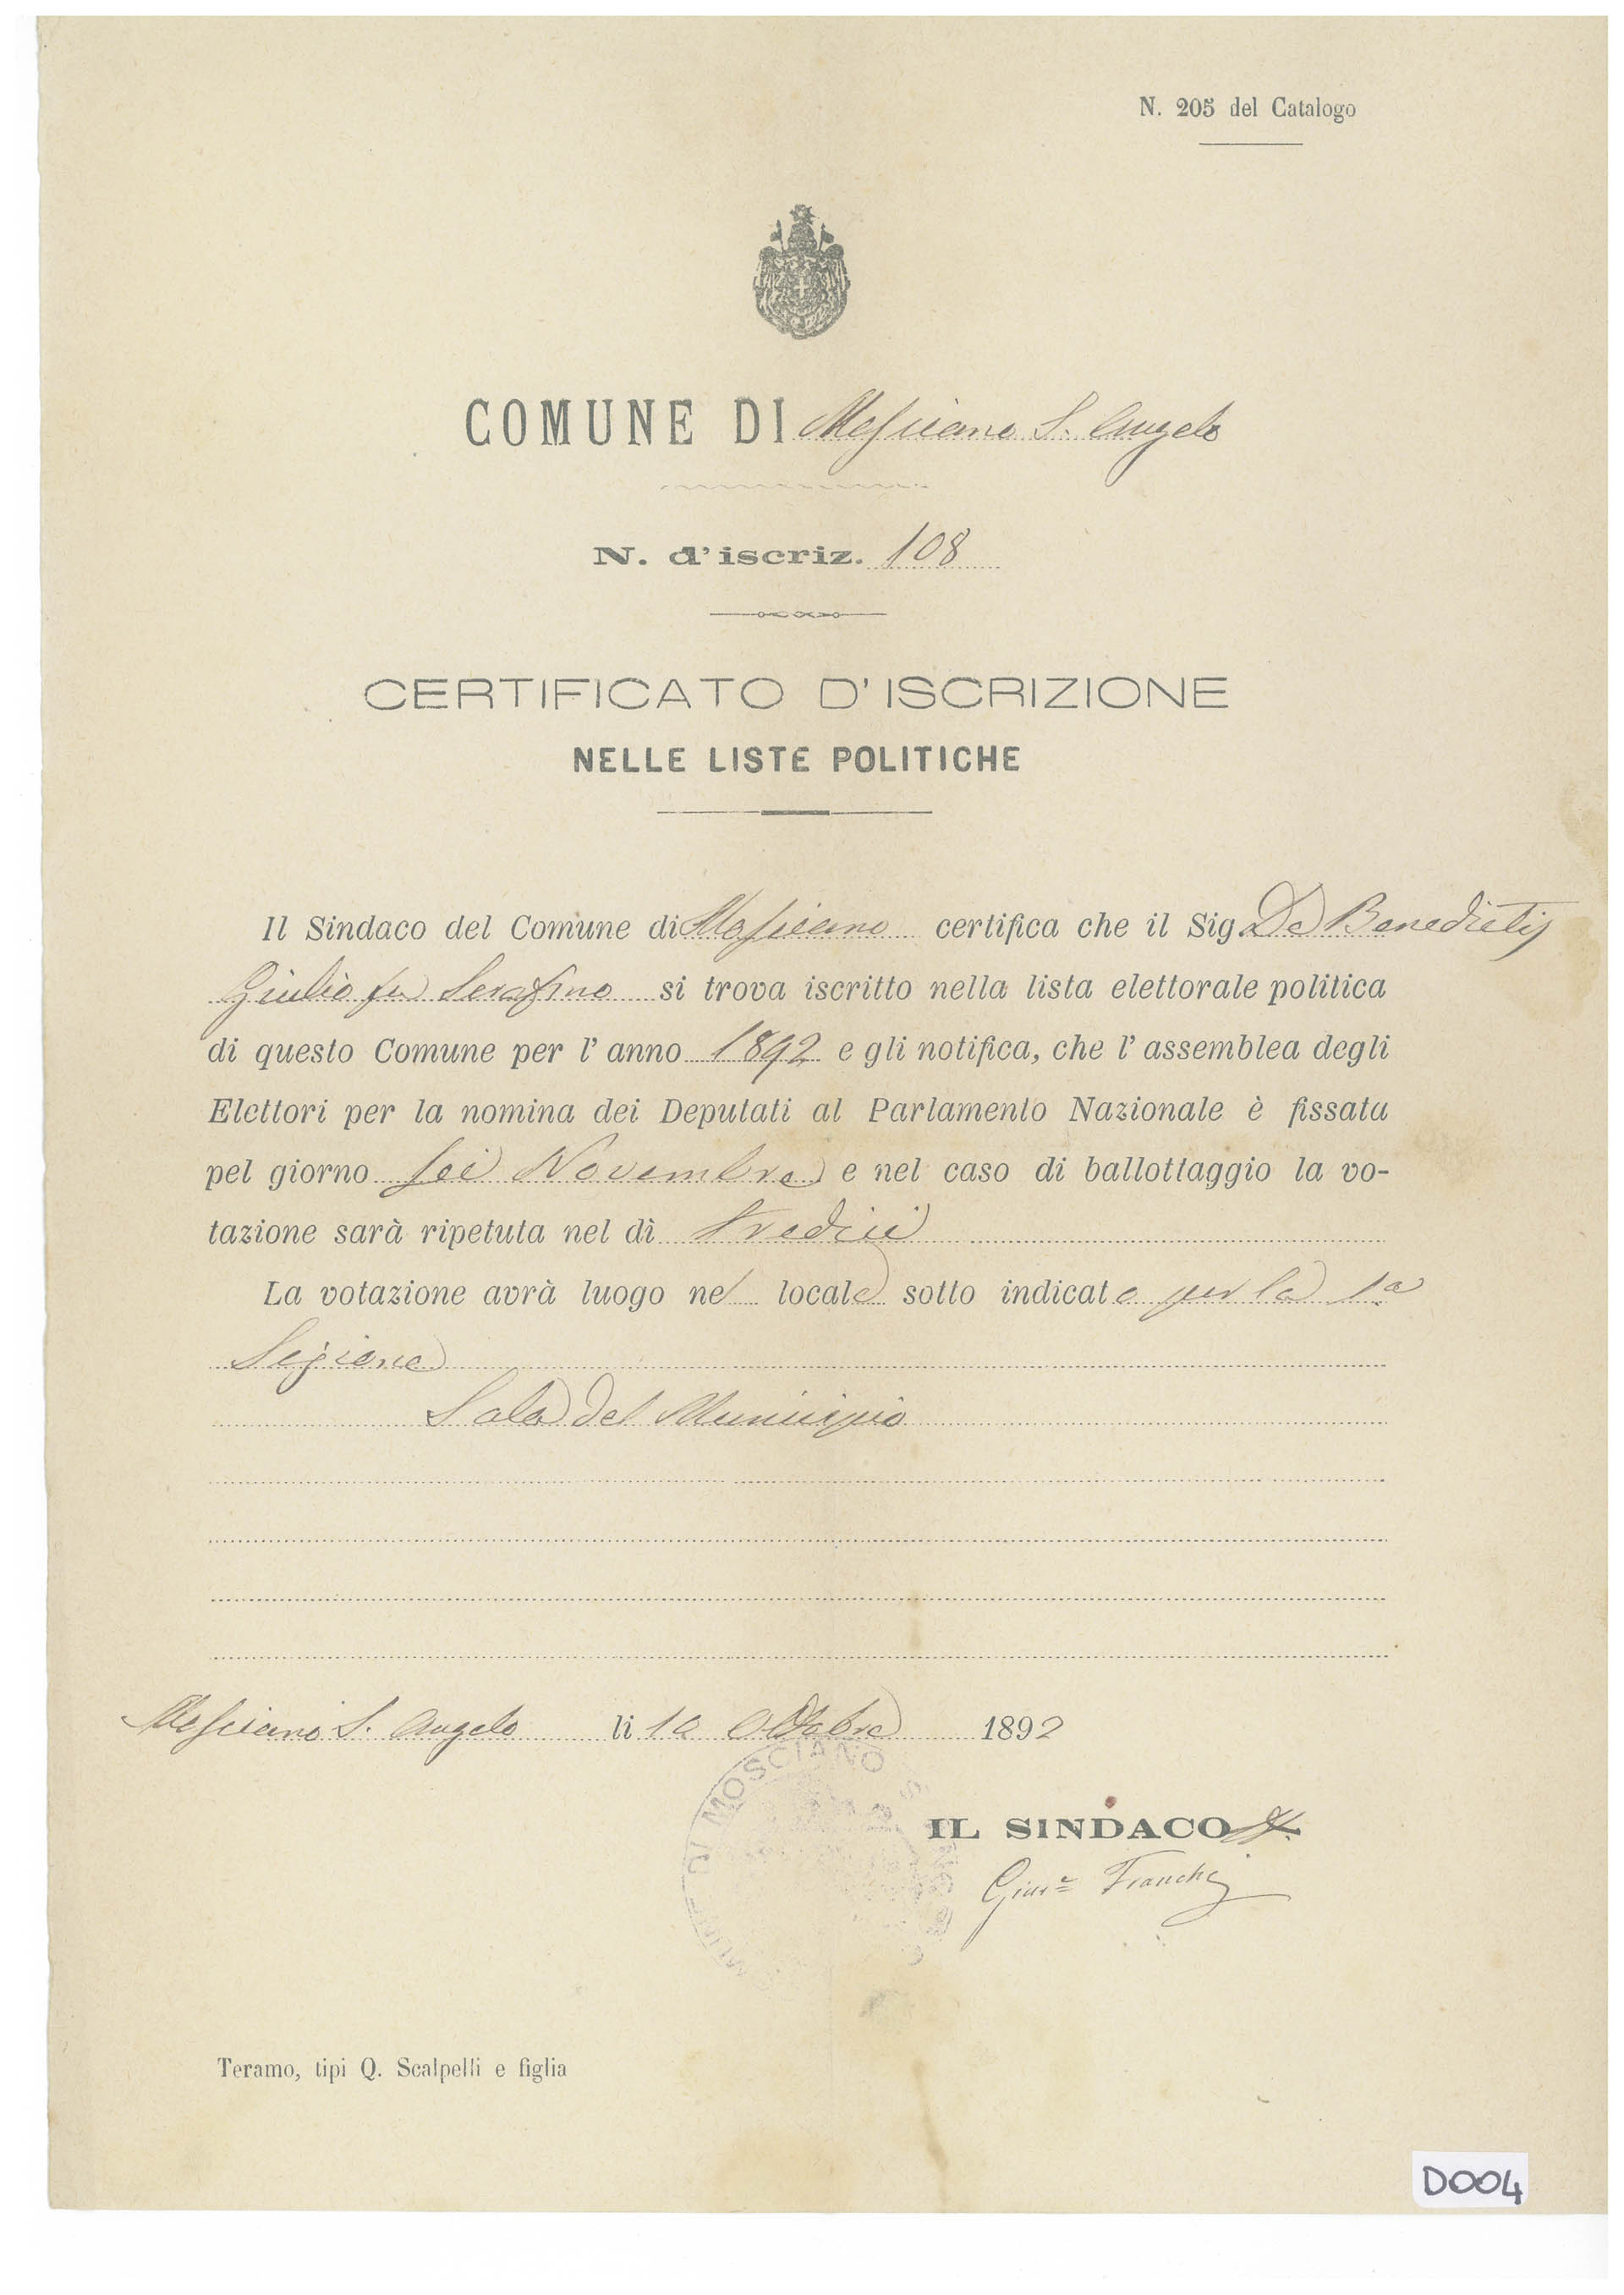 N. 205 del Catalogo
COMUNE DI Mosciano S. Angelo
N. d'iscriz. 108
CERTIFICATO D'ISCRIZIONE
NELLE LISTE POLITICHE
Il Sindaco del Comune di Mosciano certifica che il Sig. De Benedictis
Giulio fu Serafino si trova iscritto nella lista elettorale politica
di questo Comune per l'anno 1892 e gli notifica, che l'assemblea degli
Elettori per la nomina dei Deputati al Parlamento Nazionale è fissata
pel giorno sei Novembre e nel caso di ballottaggio la vo-
tazione sarà ripetuta nel dì tredici
La votazione avrà luogo nel locale sotto indicato per la 1a
Sezione
Sala del Municipio
Mosciano S. Angelo li Ottobre 1892
DI MOSCIANO S.
IL SINDACO
Gius.e Franchi
Teramo, tipi Q. Scalpelli e figlia
D004